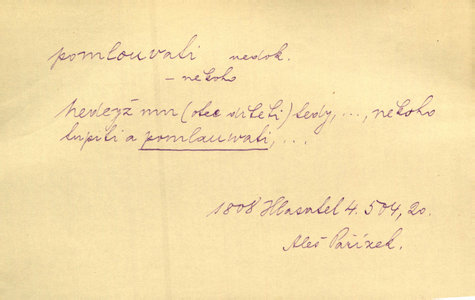 pomlouvati nedok.
– někoho
Nedejž mu (otec dítěti) tedy, ..., někoho
tupiti a pomlauwati, ...
1808 Hlasatel 4. 504, 20.
Aleš Pařízek.